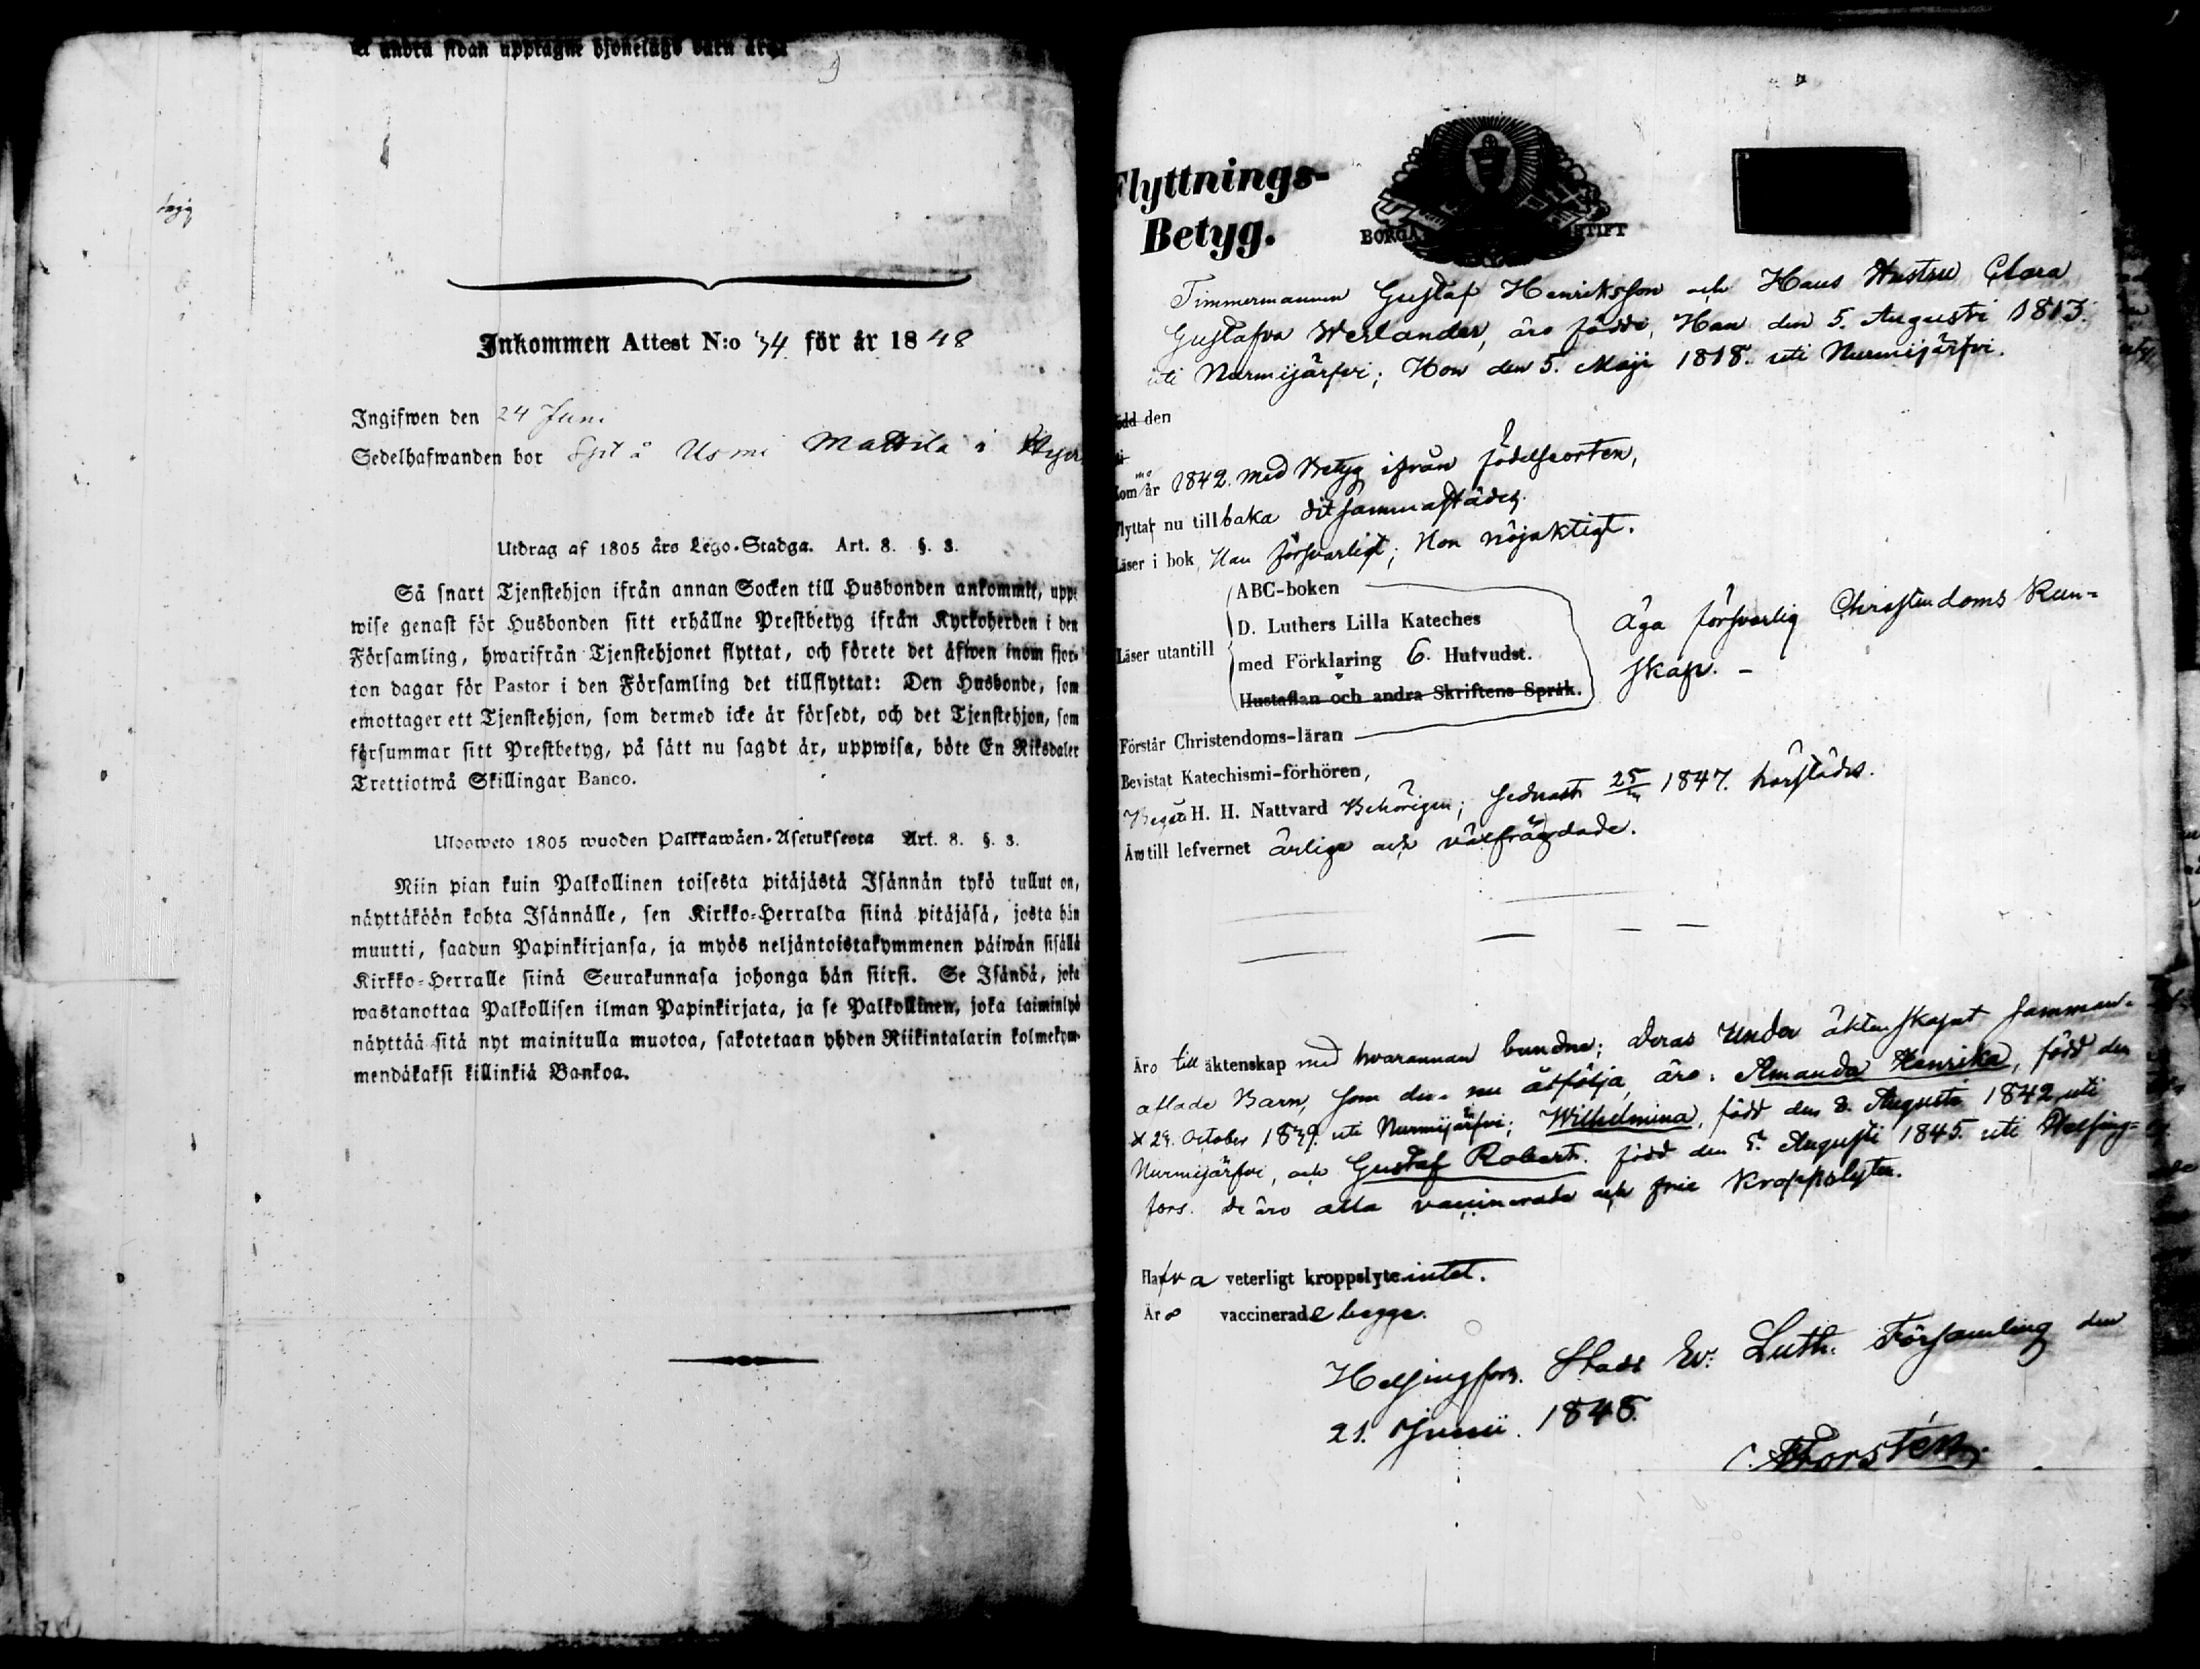 å andra sidan upptagne hjonelags barn äro
Inkommen Attest N:o 34 för år 1848
Ingifwen den 24 Juni
Sedelhafwanden bor Sjt å Usmi Mattila i
Utdrag af 1805 års Lego-Stadga. Art. 8. §. 3.
Så snart Tjenstehjon ifrån annan Socken till Husbonden ankommit, upp-
wise genast för Husbonden sitt erhållne Prestbetyg ifrån Kyrkoherden i den
Församling, hwarifrån Tjenstehjonet flyttat, och förete det äfwen inom fjor-
ton dagar för Pastor i den Församling det tillflyttat: Den Husbonde, som
emottager ett Tjenstehjon, som dermed icke är försedt, och det Tjenstehjon, som
försummar sitt Prestbetyg, på sätt nu sagdt är, uppwisa, böte En Riksdaler
Trettiotwå Skillingar Banco.
Ulosweto 1805 wuoden Palkkawäen-Asetuksesta Art. 8. §. 3.
Niin pian kuin Palkollinen toisesta pitäjästä Isännän tykö tullut on,
näyttäköön kohta Isännälle, sen Kirkko-Herralda siinä pitäjäsä, josta hän
muutti, saadun Papinkirjansa, ja myös neljäntoistakymmenen päiwän sisällä
Kirkko-Herralle siinä Seurakunnasa johonga hän siirsi. Se Isändä, joka
wastanottaa Palkollisen ilman Papinkirjata, ja se Palkollinen, joka laiminlyö
näyttää sitä nyt mainitulla muotoa, sakotetaan yhden Riikintalarin kolmekym-
mendäkaksi killinkiä Bankoa.
Flyttnings-
Betyg.
BORGÅ STIFT
Timmermannen Gustaf Henriksson och Hans Hustru Clara
Gustafva Weslander, äro födde, Han den 5. Augusti 1813.
uti Nurmijärfvi; Hon den 5. Maji 1818. uti Nurmijärfvi.
född den
kommo år 1842. med Betyg ifrån födelseorten,
Flyttar nu tillbaka ditsammastädes.
Läser i bok, Han försvarligt; Hon nöjaktigt.
ABC-boken
D. Luthers Lilla Kateches
Läser utantill
med Förklaring 6. Hufvudst.
Hustaflan och andra Skriftens Språk.
Äga försvarlig Christendoms Kun-
skap. -
Förstår Christendoms-läran
Bevistat Katechismi-förhören,
Begått H. H. Nattvard Behörigen; sednast 25 1847. härstädes.
Äro till lefvernet ärliga och välfrägdade.
Äro till äktenskap med hvarannan bundne; Deras Under äktenskapet samman-
aflade Barn, som dem nu åtfölja, äro: Amanda Henrika, född den
29. October 1839. uti Nurmijärfvi; Wilhelmina, född den 8. Augusti 1842 uti
Nurmijärfvi, och Gustaf Robert. född den 5. Augusti 1845. uti Helsing-
fors. de äro alla vaccinerade och frie Kroppslyten.
Hafva veterligt kroppslyte intet.
Äro vaccinerade begge.
Helsingfors. Stads Ev. Luth. Församling den
21. Junii. 1848.
Forstén.